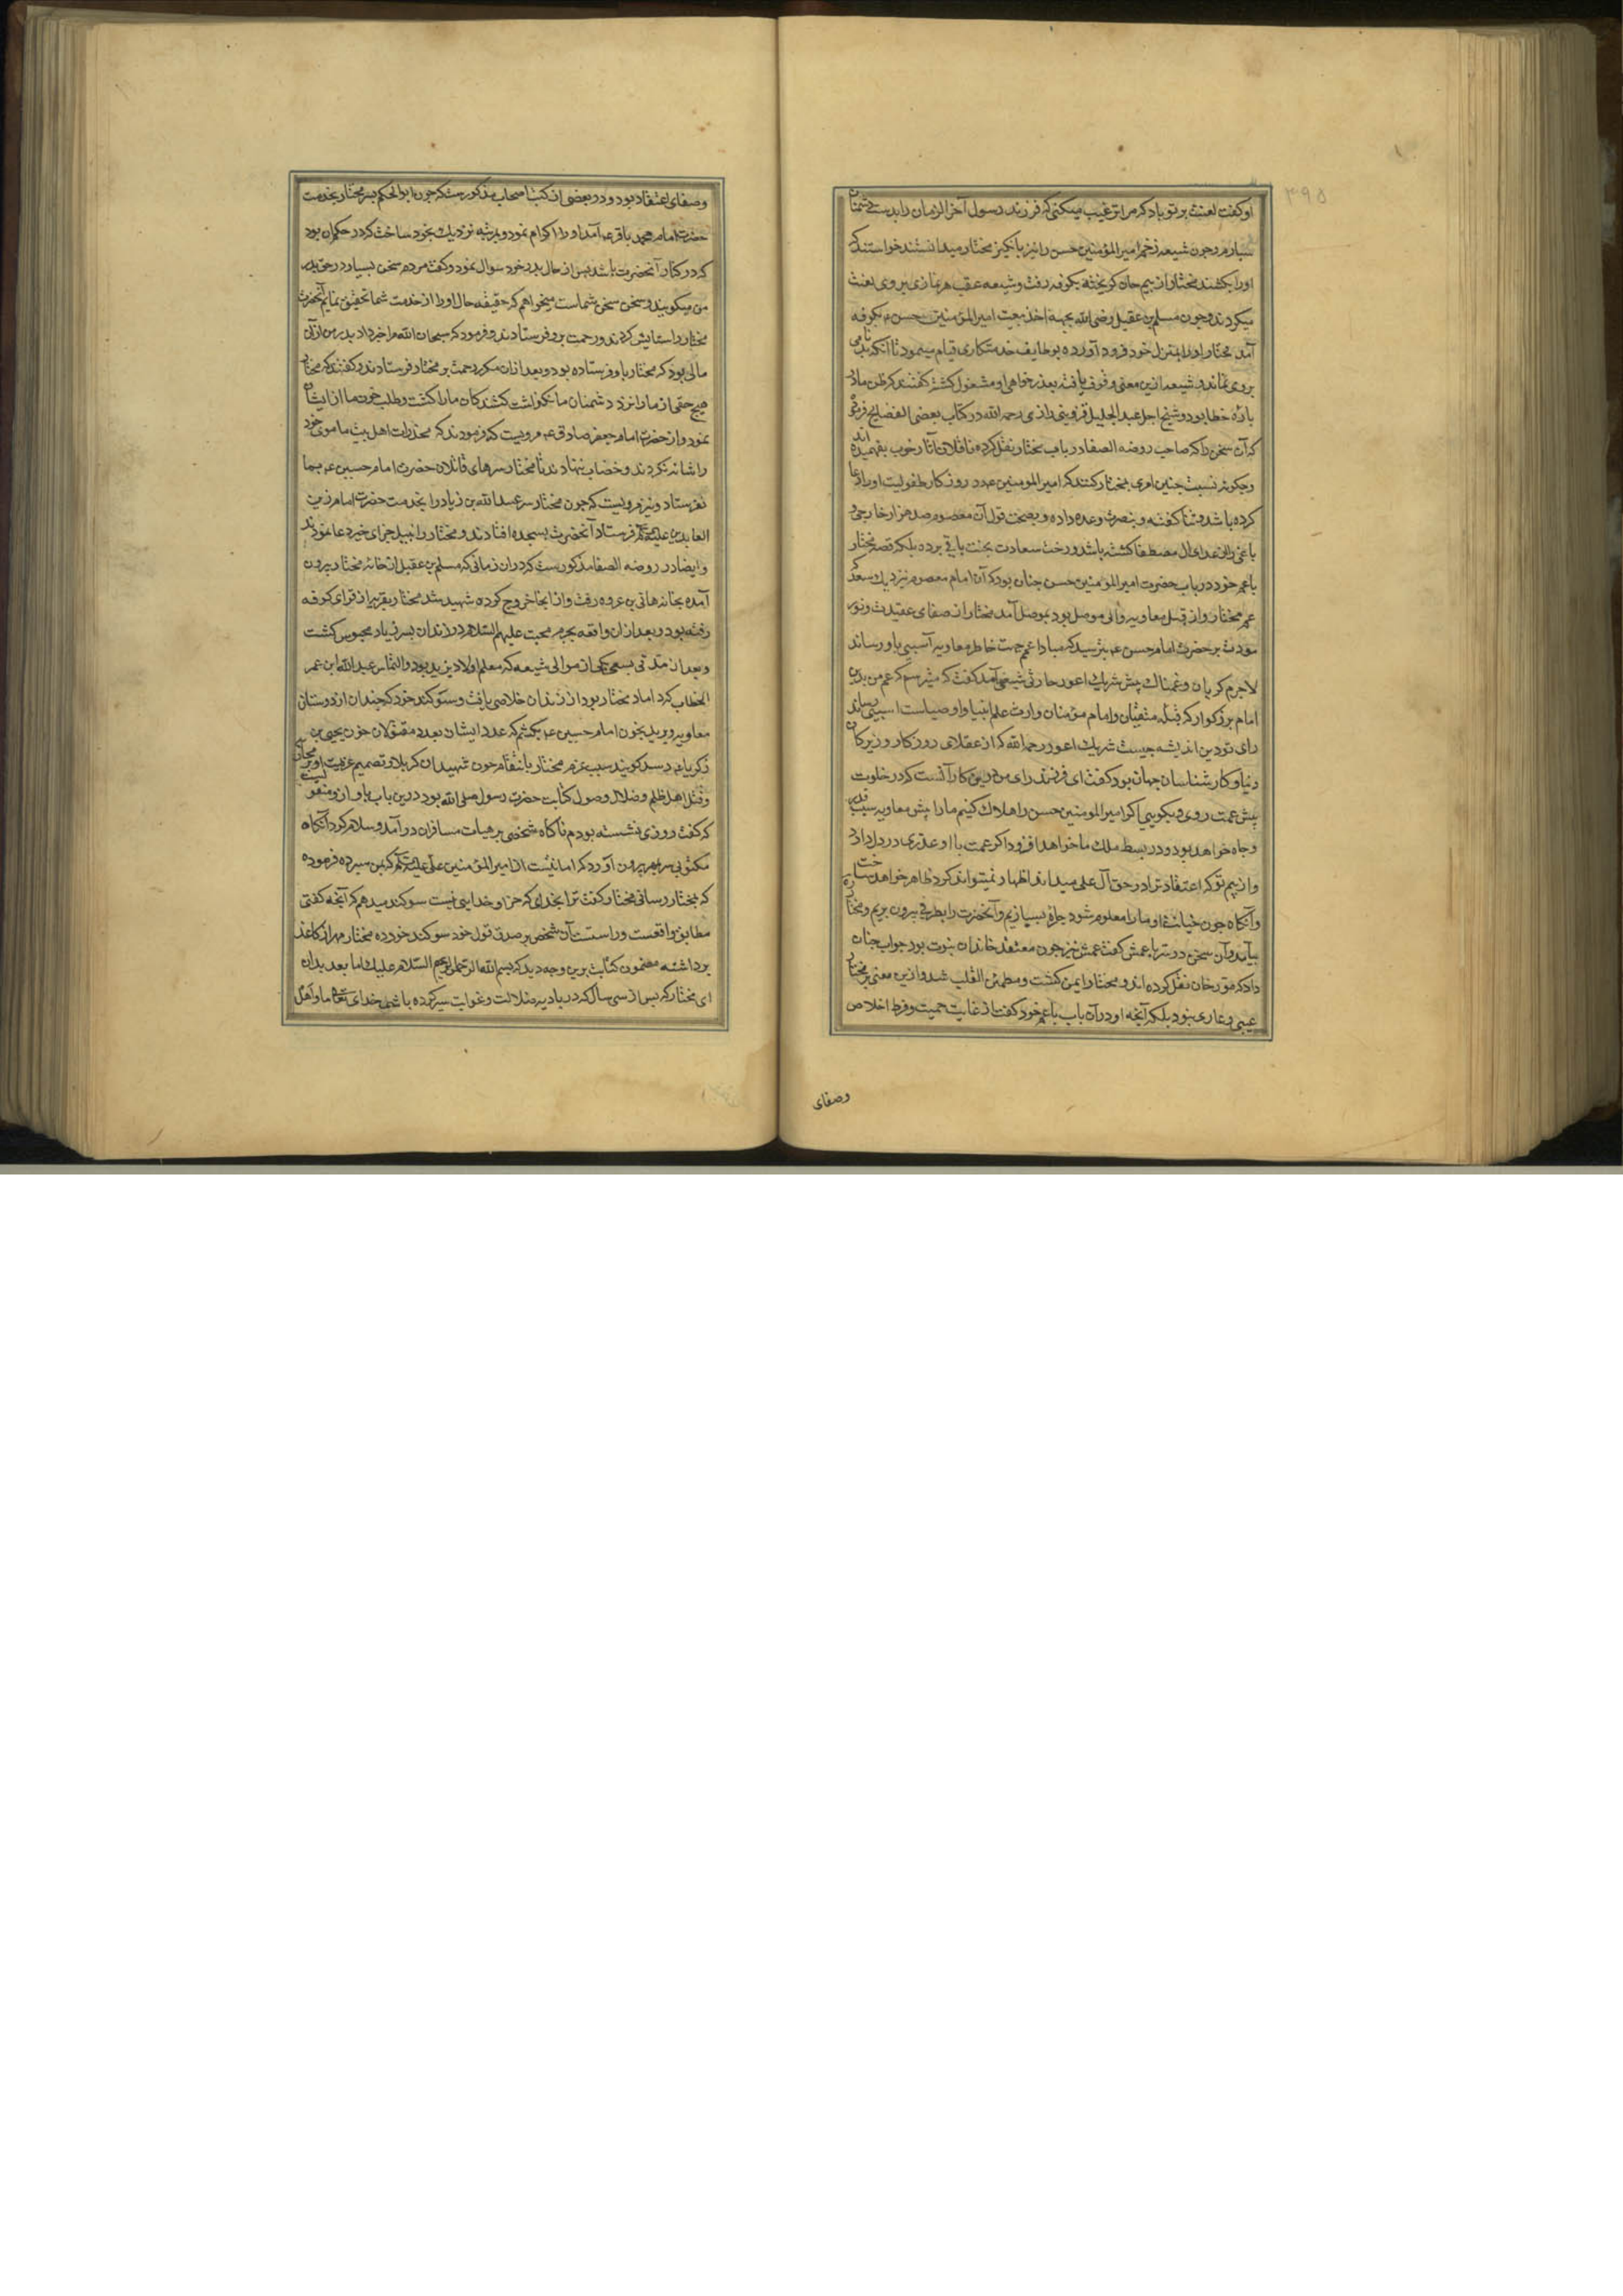 ۳۹۵
او کفت لعنت بر تو باد که مرا ترغیب میکنی که فرزند رسول آخر الزمان را بدست دشمنان
سپارم و چون شیعه زخم امیر المؤمنین حسن را نیز بانکیز مختار میدانستند خواستند که
او را بکشند مختار از بیم جان کریخته بکوفه رفت و شیعه عقب هر نمازی بر وی لعنت
میکردند و چون مسلم بن عقیل رضی الله بجهة اخذ بیعت امیر المؤمنین حسین ع بکوفه
آمد مختار او را بمنزل خود فرود آورده بوظایف خدمتکاری قیام مینمود تا آنکه بدنامی
بروی نماند و شیعه ازین معنی وقوف یافته بعذر خواهی او مشغول کشته کفتند که ظن ما در
باره خطا بود و شیخ اجل عبد الجلیل قزوینی رازی رحمه الله در کتاب بعضی الفضایح فرموده
که آن سخن را که صاحب روضه الصفا در باب مختار نقل کرده ناقلان آثار خوب نفهمیده اند
و چکونه نسبت چنین امری بمختار کنند که امیر المومنین ع در روزکار طفولیت او را دعا
کرده باشد و ثنا کفته و بنصرت وعده داده و بصحت قول آن معصوم صد هزار خارجی و
باغی را از اعدای آل مصطفا کشته باشد و رخت سعادت بجنت باقی برده بلکه قصه مختار
با عم خود در باب حضرت امیر المومنین حسن چنان بود که آن امام معصوم نزدیک سعد که
عم مختار و از قبل معاویه والی موصل بود بموصل آمد مختار از صفای عقیدت و نور
مودت بر حضرت امام حسن ع بترسید که مبادا عم جهت خاطر معاویه آسیبی باو رساند
لاجرم کریان و غمناک پیش شریک اعور حارثی شیعی آمد کفت که میترسم که عم من بدین
امام بزرکوار که قبله متقیان و امام مؤمنان وارث علم انبیا و اوصیاست اسیبی رساند
رای تو درین اندیشه چیست شریک اعور رحمه الله که از عقلای روزکار و زیرکان
دنیا و کارشناسان جهان بود کفت ای فرزند رای من درین کار آنست که در خلوت
پیش عمت روی و بکویی اکر امیر المومنین حسن را هلاک کنیم ما را پیش معاویه سبب قدر
و جاه خواهد بود و در بسط ملک ما خواهد افزود اکر عمت با او عذری در دل دارد
و از بیم تو که اعتقاد ترا در حق آل علی میداند اظهار نمیتواند کرد ظاهر خواهد ساخت
و آنکاه چون خیانت او ما را معلوم شود چاره بسازیم و آنحضرت را بطرفی بیرون بریم و مختار
بیامد و آن سخن در سر با عمش کفت عمش نیز چون معتقد خاندان نبوت بود جواب چنان
داد که مورخان نقل کرده اند و مختار ایمن کشت و مطمئن القلب شد و ازین معنی بر مختار
عیبی و عاری نبود بلکه آنچه او در آن باب با عم خود کفت از غایت حمیت و فرط اخلاص
وصفای
وصفای اعتقاد بود و در بعضی از کتب اصحاب مذکورست که چون ابو الحکم پسر مختار بخدمت
حضرت امام محمد باقر ع آمد او را اکرام نمود و بمرتبه نزدیک بخود ساخت که در حکم آن بود
که در کنار آنحضرت باشد پس از حال پدر خود سوال نمود و کفت مردم سخن بسیار در حق پدر
من میکویند و سخن سخن شماست میخواهم که حقیقه حال او را از خدمت شما تحقیق نمایم آنحضرت
مختار را ستایش کردند و رحمت برو فرستادند و فرمود که سبحان الله مرا خبر داد پدر من از آن
مالی بود که مختار باو فرستاده بود و بعد از آن مکرر رحمت بر مختار فرستادند و کفتند که مختار
هیچ حقی از ما را نزد دشمنان ما نکذاشت کشندکان ما را کشت و طلب خون ما از ایشان
نمود و از حضرت امام جعفر صادق ع مرویست که فرمودند که مخدرات اهل بیت ما موی خود
را شانه نکردند و خضاب ننهادند تا مختار سرهای قاتلان حضرت امام حسین ع بما
نفرستاد و نیز مرویست که چون مختار سر عبید الله بن زیاد را بخدمت حضرت امام زین
العابدین علیه السلم فرستاد آنحضرت بسجده افتادند و مختار را نبیل جزای خیر دعا نمودند
و ایضا در روضه الصفا مذکورست که در ان زمانی که مسلم بن عقیل از خانه مختار بیرون
آمده بخانه هانی بن عروه رفت و از انجا خروج کرده شهید شد مختار بقریه از قرای کوفه
رفته بود و بعد از ان واقعه بجرم محبت علیهم السلام در زندان پسر زیاد محبوس کشت
و بعد از مدتی بسعی یکی از موالی شیعه که معلم اولاد یزید بود و التماس عبد الله ابن عمر
الخطاب که داماد مختار بود از زندان خلاصی یافت و سوکند خورد که چندان از دوستان
معاویه و یزید بخون امام حسین ع بکشم که عدد ایشان بعدد مقتولان خون یحیی بن
زکریا ع رسد کویند سبب عزم مختار بانتقام خون شهیدان کربلا و تصمیم عزیمت او بر محاربه
و قتل اهل ظلم و ضلال وصول کتابت حضرت رسول صلی الله بود درین باب باو از و منقولیست
که کفت روزی نشسته بودم ناکاه شخصی بر هیات مسافران در آمد و سلام کرد آنکاه
مکتوبی سر بمهر بیرون آورد که امانتیست از امیر المؤمنین علی علیه السلم که بمن سپرده فرموده
که بمختار رسانی مختار کفت ترا بخدای که جز او خدایی نیست سوکند میدهم که آنچه کفتی
مطابق واقعست و راست است آن شخص بر صدق قول خود سوکند خورده مختار مهر از کاغذ
برداشته مضمون کتابت برین وجه دید که بسم الله الرحمن الرحیم السلام علیک اما بعد بدان
ای مختار که پس از سی سال که در بادیه ضلالت و غوایت سیر کرده باشی خدای تعالی ما و اهل